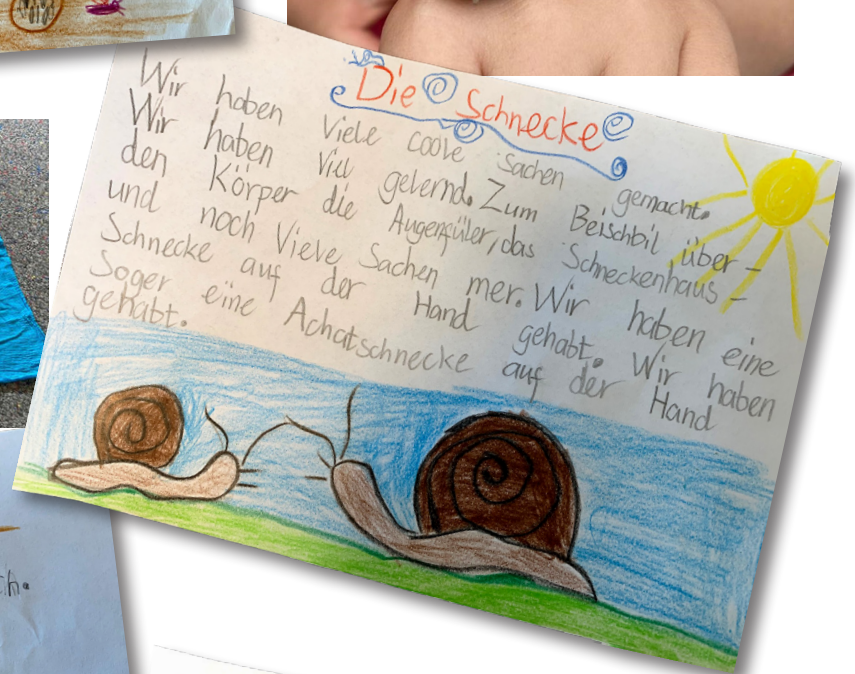 Die Schnecke
Wir haben Viele coole Sachen gemacht.
Wir haben viel gelernd. Zum Beischbil über-
den Körper die Augenfüler, das Schneckenhaus-
und noch Viele Sachen mer. Wir haben eine
Schnecke auf der Hand gehabt. Wir haben
Soger eine Achatschnecke auf der Hand
gehabt.